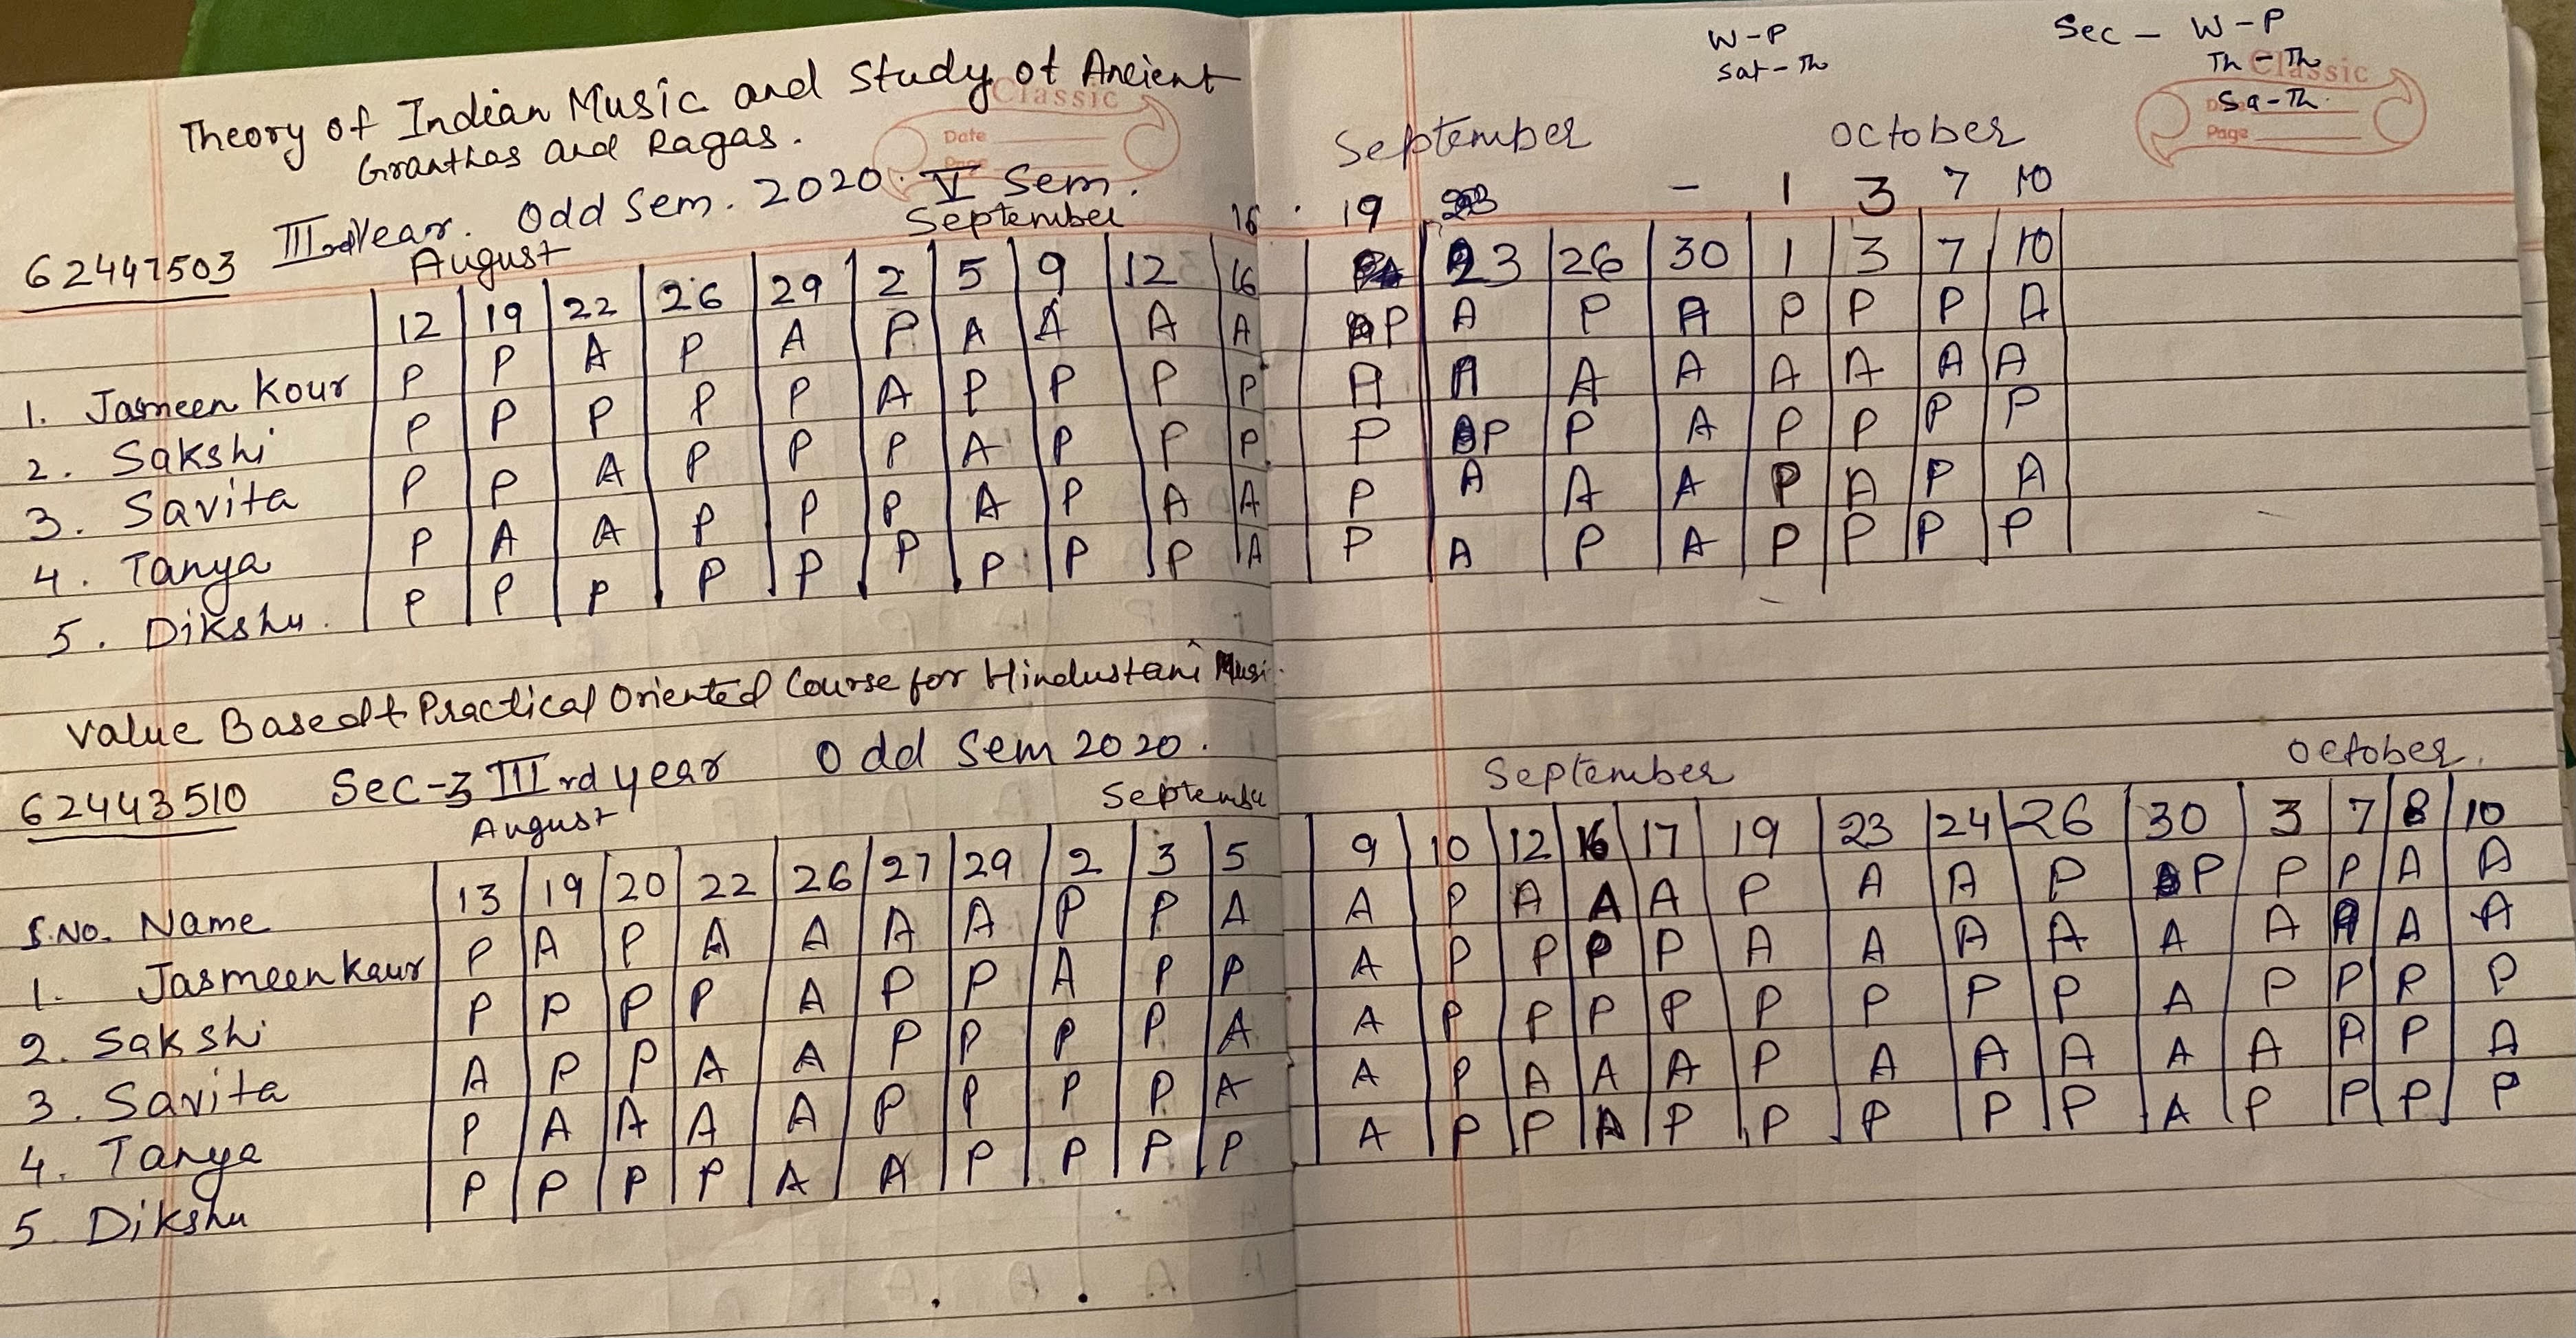 Theory of Indian Music and Study of Ancient
Granthas and Ragas.
IIIrd Year. Odd Sem. 2020. V Sem.
62447503
August September 16
12 19 22 26 29 2 5 9 12 16
1. Jasmeen Kour P P A P A P A A A A
2. Sakshi P P P P P A P P P P
3. Savita P P A P P P A P P P
4. Tanya P A A P P P A P A A
5. Dikshu. P P P P P P P P P A
Value Based + Practical Oriented Course for Hindustani Musi
62443510 Sec-3 IIIrd year Odd Sem 2020.
August Septembe
S.No. Name 13 19 20 22 26 27 29 2 3 5
1. Jasmeen kaur P A P A A A A P P A
2. Sakshi P P P P A P P A P P
3. Savita A P P A A P P P P A
4. Tanya P A A A A P P P P A
5. Dikshu P P P P A A P P P P
W-P
Sat-Th
Sec - W-P
Th-Th
Sa-Th.
Classic
Date
Page
Classic
Page
September October
19 - 1 3 7 10
23 26 30 1 3 7 10
P A P A P P P A
A A A A A A A A
P P P A P P P P
P A A A P A P A
P A P A P P P P
September October.
9 10 12 16 17 19 23 24 26 30 3 7 8 10
A P A A A P A A P P P P A A
A P P P P A A A A A A A A A
A P P P P P P P P A P P P P
A P A A A P A A A A A P P A
A P P A P P P P P A P P P P